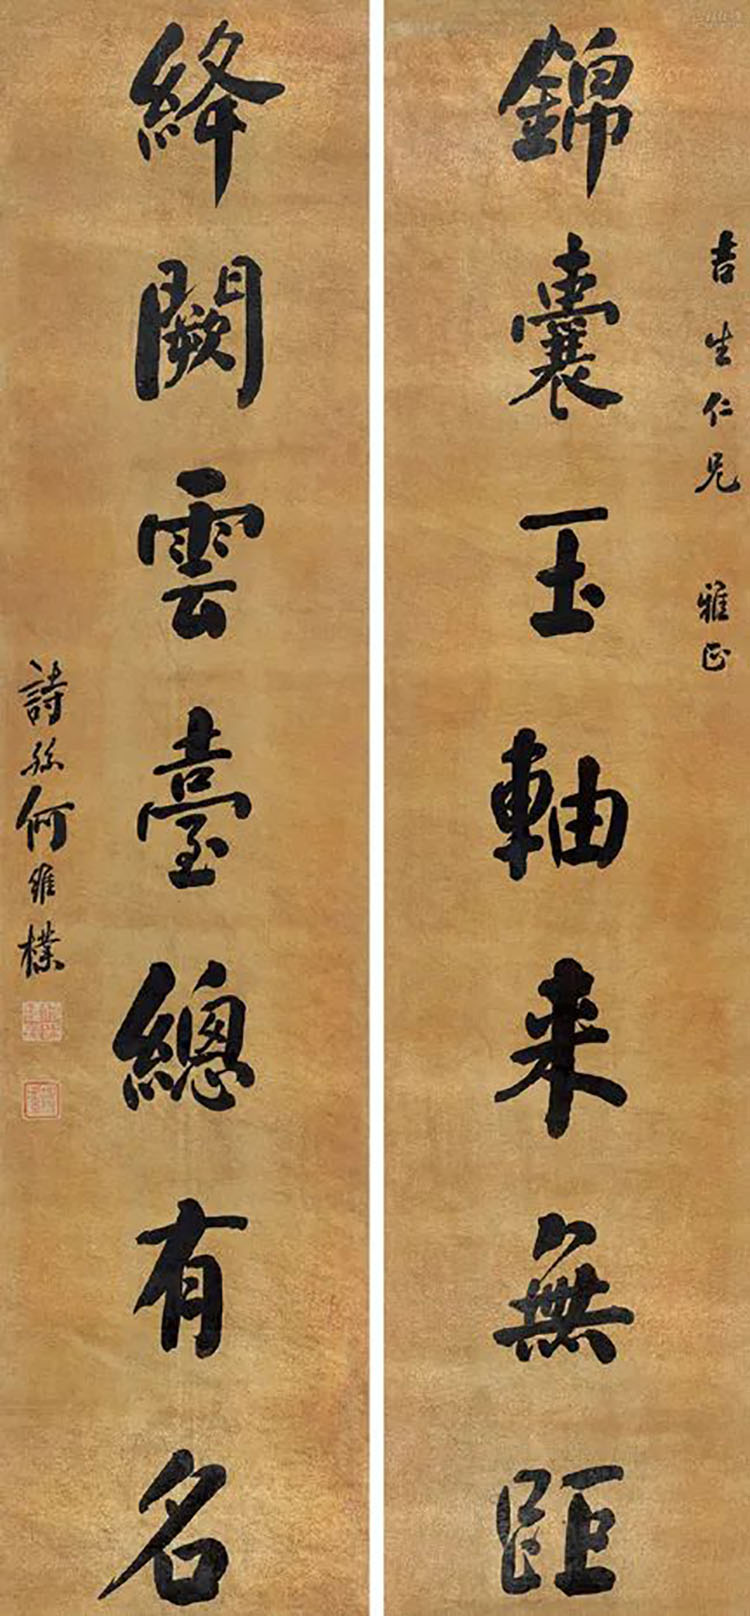 吉生仁兄 雅正
錦囊玉軸来無距
絳闕雲臺總有名
詩孫何維樸